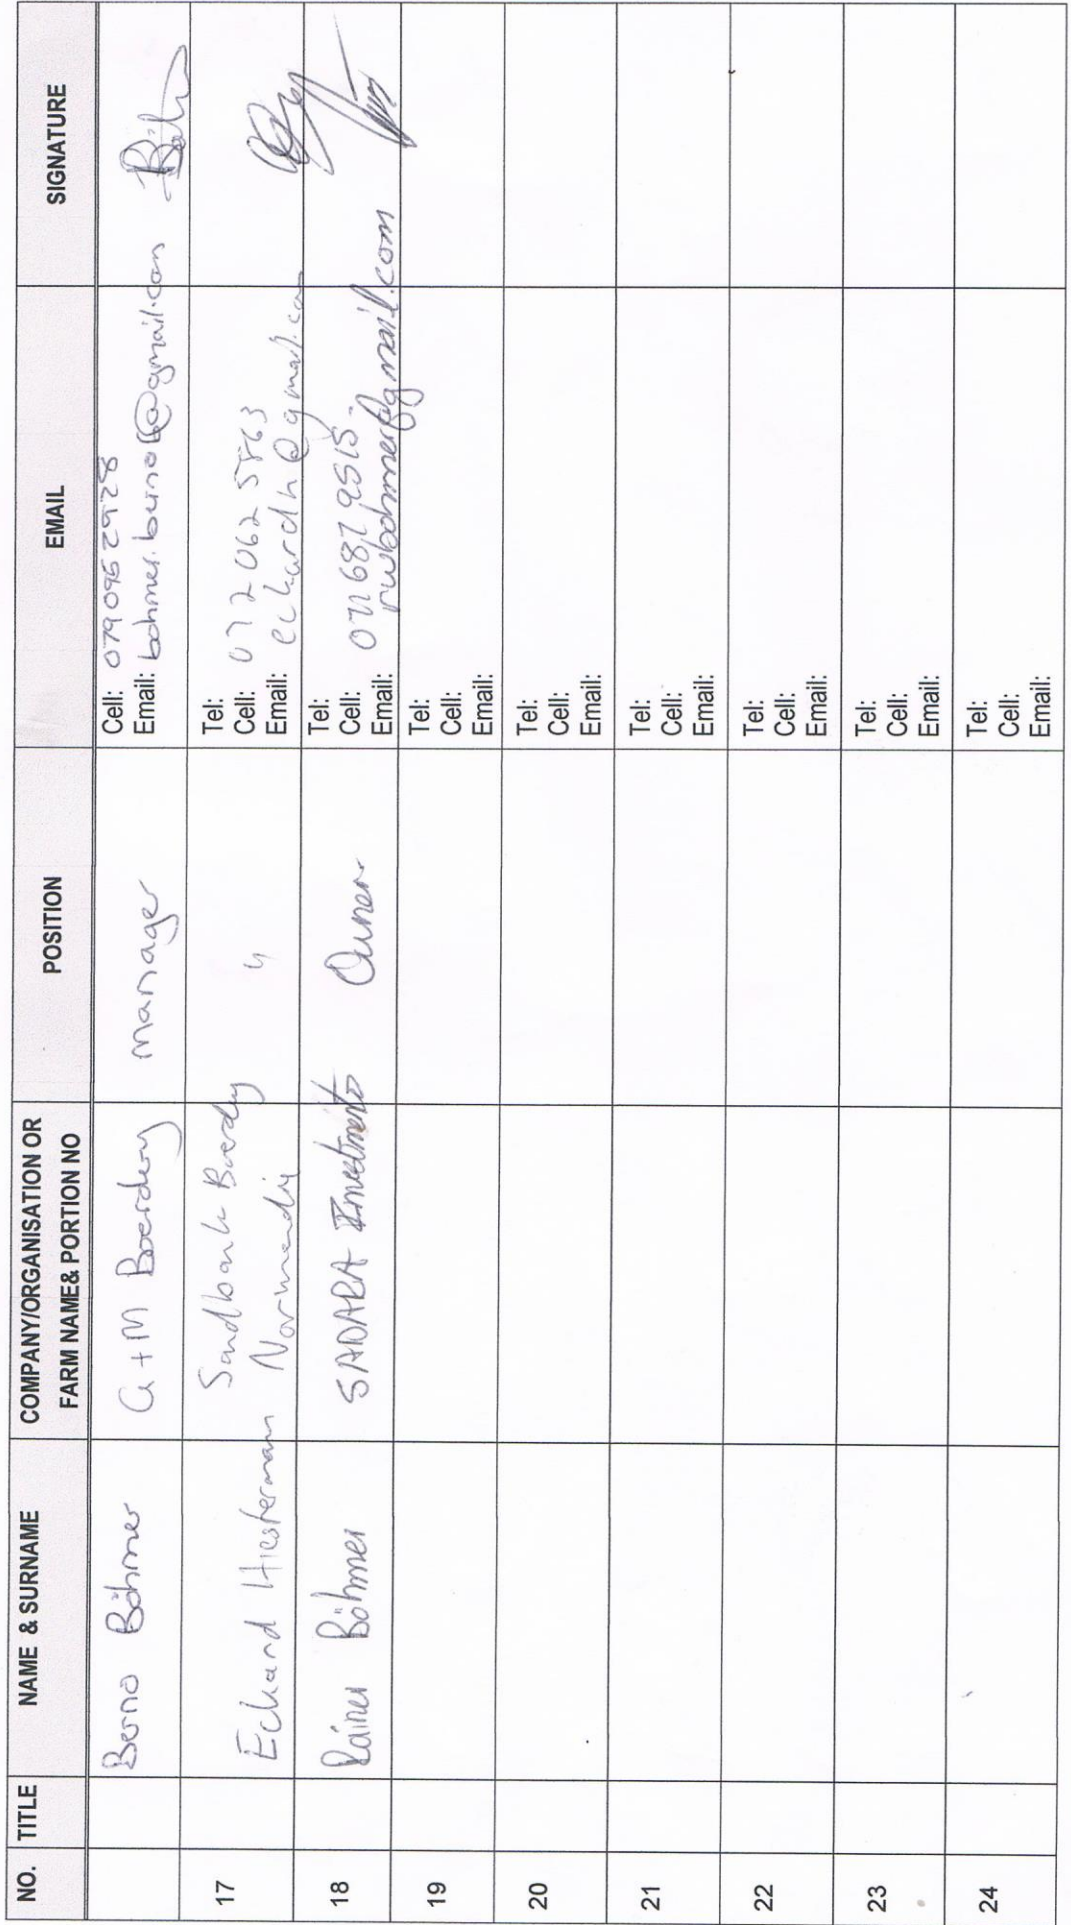 NO. TITLE NAME & SURNAME COMPANY/ORGANISATION OR FARM NAME& PORTION NO POSITION EMAIL SIGNATURE
Berno Böhmer G + M Boerdery manager Cell: 079 095 2928
Email: bohmer.berno6@gmail.com
17 Eckard Hiestermann Sandbank Boerdery Normandie " Tel:
Cell: 072 062 5863
Email: eckardh@gmail.com
18 Rainer Böhmer SADARA Investments Owner Tel:
Cell: 071 687 9515
Email: rwbohmer@gmail.com
19 Tel:
Cell:
Email:
20 Tel:
Cell:
Email:
21 Tel:
Cell:
Email:
22 Tel:
Cell:
Email:
23 Tel:
Cell:
Email:
24 Tel:
Cell:
Email: